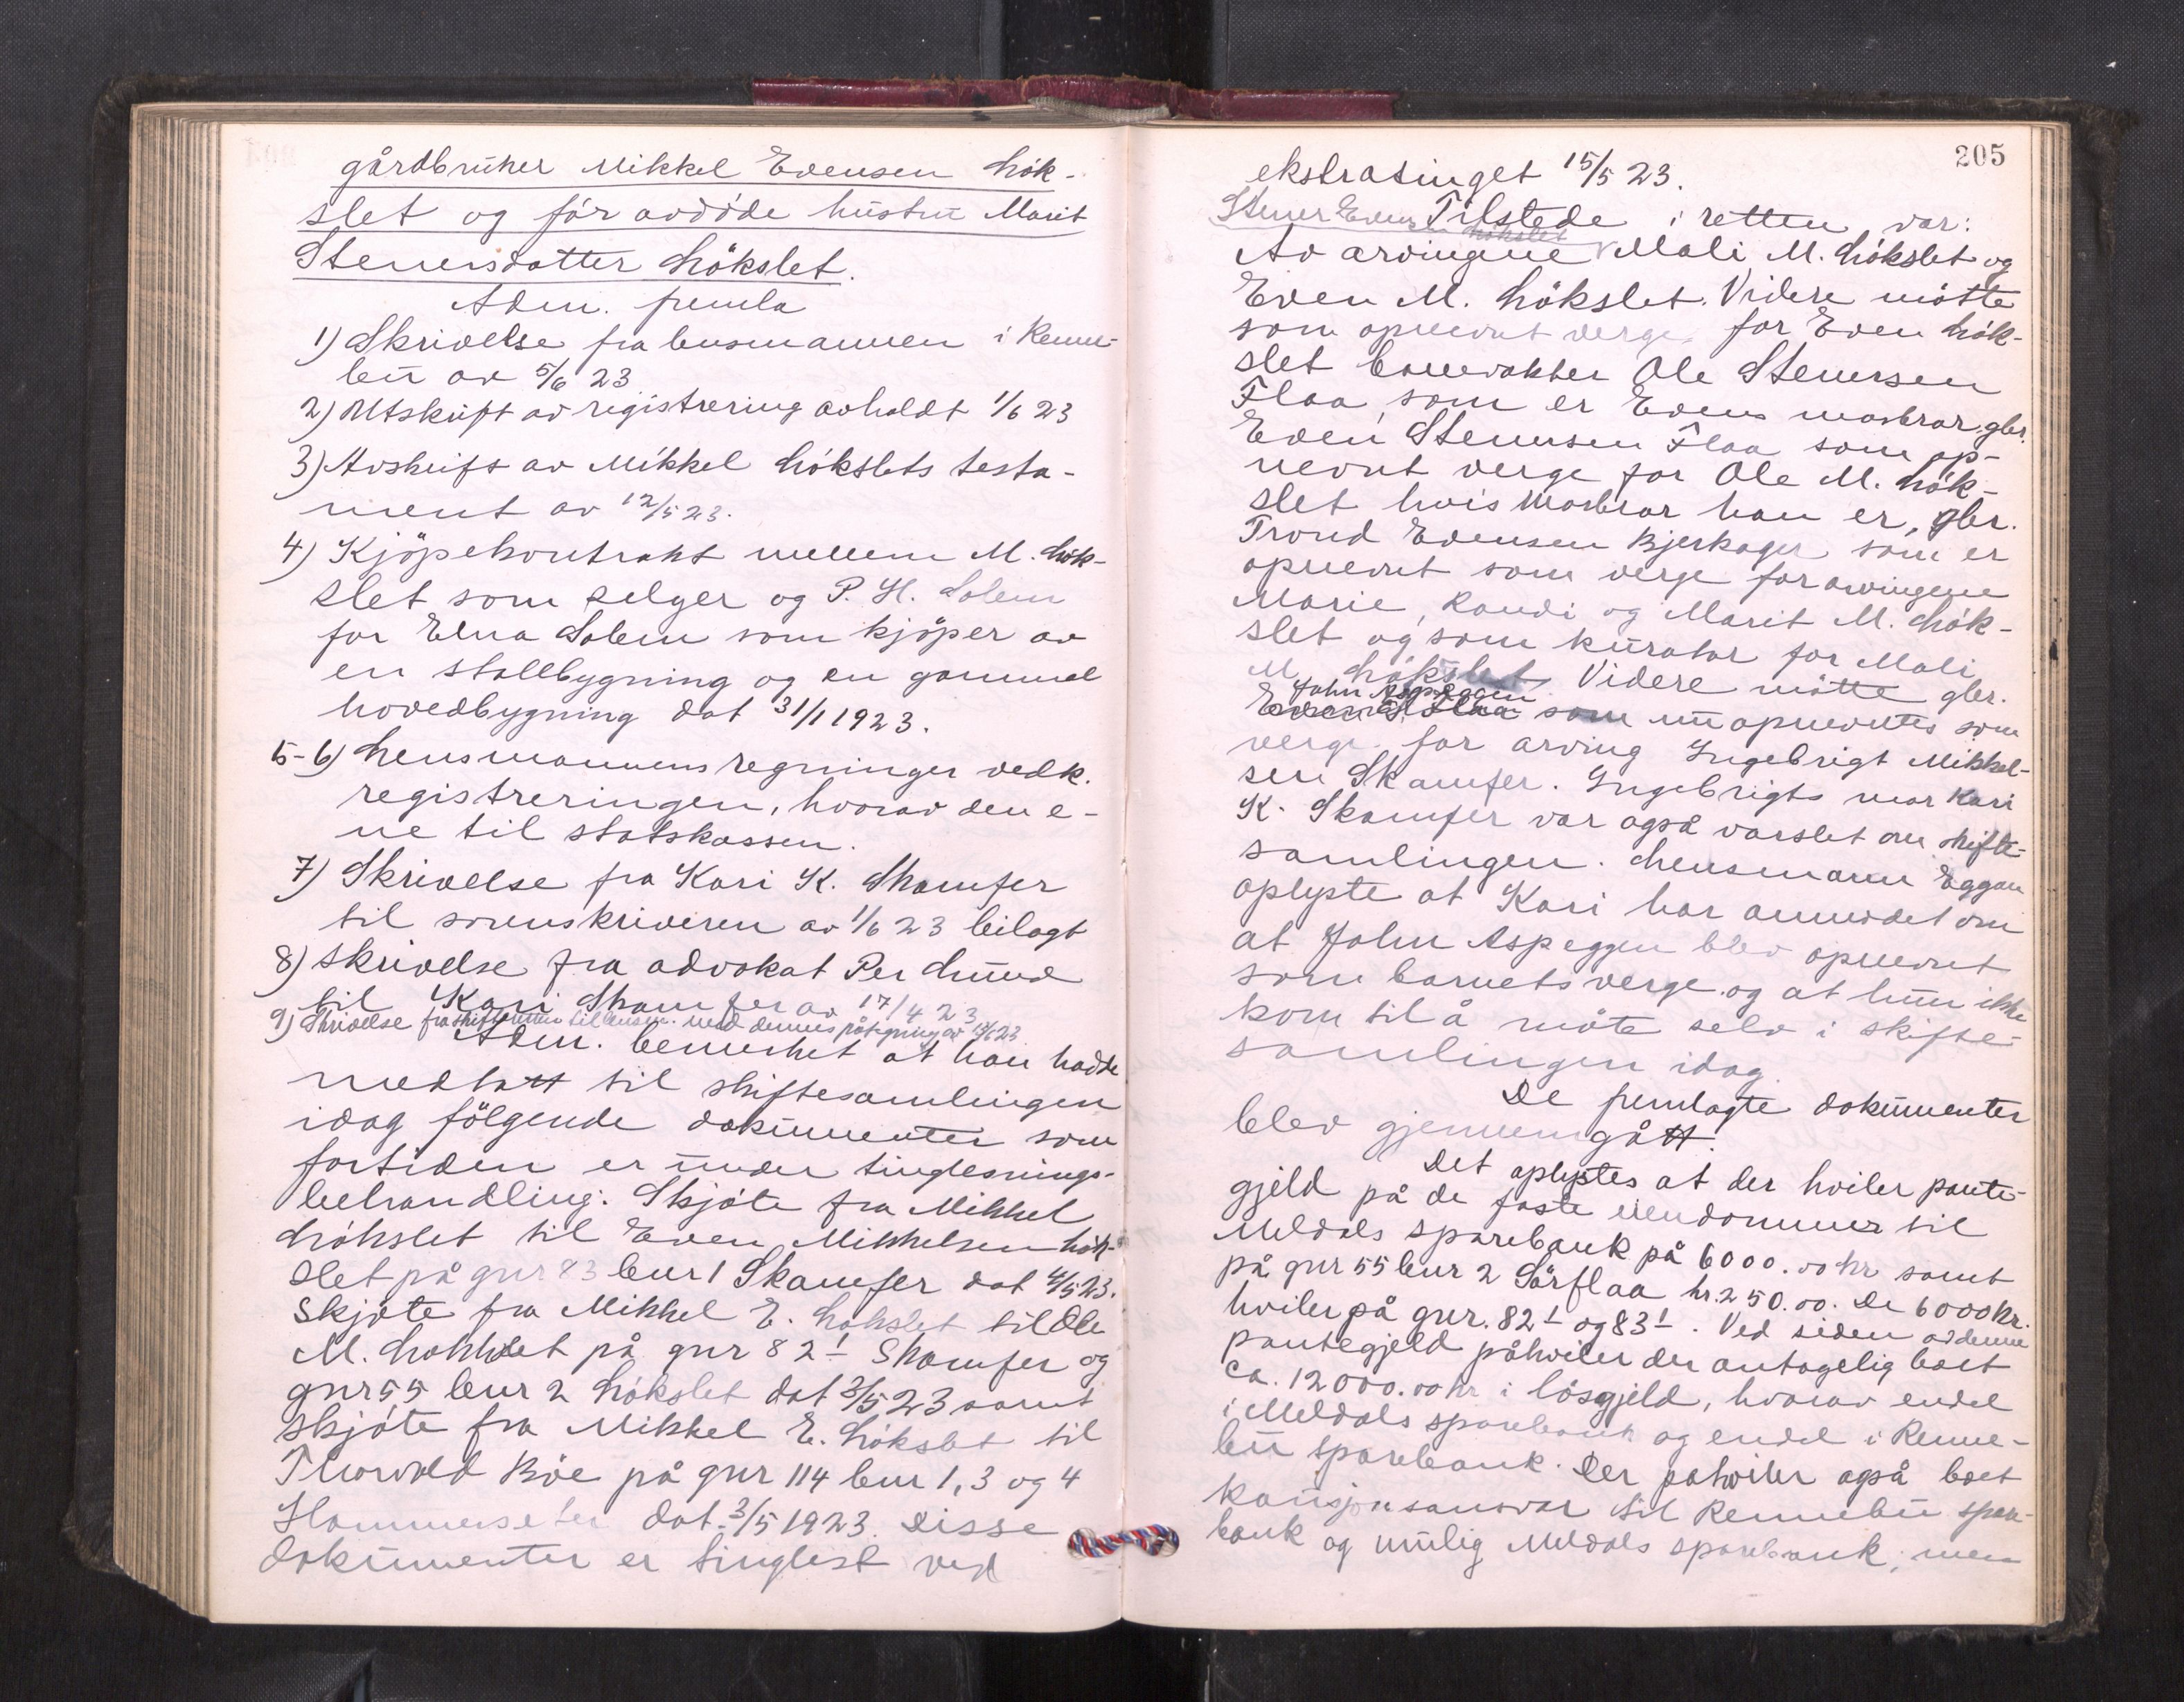 gårdbruker Mikkel Evensen Lök-
slet og för avdöde hustru Marit
Steuersdatter Lökslet.
Adm. fremla
1) Skrivelse fra lensmannen i Renne-
bu av 5/6 23
2) Utskrift av registrering avholdt 1/6 23
3) Avskrift av Mikkel Lökslets testa-
ment av 12/5 23.
4) Kjöpekontrakt mellem M. Lök-
slet som selger og P. H. Solem
for Elna Solem som kjöper av
en stallbygning og en gammel
hovedbygning dat 31/1 1923.
5-6) Lensmannens regninger vedk.
registreringen, hvorav den e-
ne til statskassen.
7) Skrivelse fra Kari K. Skamfer
til sorenskriveren av 1/6 23 bilagt
8) skrivelse fra advokat Per Lund
til Kari Skamfer av 17/4 23
9) Skrivelse fra skifteretten til lensm. med dennes påtegning av 13/6 23
Adm. bemerket at han hadde
medtatt til skiftesamlingen
idag fölgende dokumenter som
fortiden er under tinglesnings-
behandling: Skjöte fra Mikkel
Lökslet til Even Mikkelsen Lök-
slet på gnr 83 bnr 1 Skamfer dat 4/5 23.
Skjöte fra Mikkel E. Lökslet til Ole
M. Lökslet på gnr 82 1 Skamfer og
gnr 55 bnr 2 Lökslet dat 3/5 23 samt
skjöte fra Mikkel E. Lökslet til
Thorvald Böe på gnr 114 bnr 1, 3 og 4
Hammerseter dat. 3/5 1923. Disse
dokumenter er tinglest ved
205
ekstratinget 15/5 23.
Tilstede i retten var:
Steuer Evensen Lökslet
Av arvingene Mali M. Lökslet og
Even M. Lökslet. Videre mötte
som opnevnt verge for Even Lök-
slet banevokter Ole Steuersen
Flaa, som er Evens morbror, gbr.
Even Steuersen Flaa som op-
nevnt verge for Ole M. Lök-
slet hvis morbror han er, gbr.
Trond Evensen Bjerkager som er
opnevnt som verge for arvingene
Marie, Randi og Marit M. Lök-
slet og som kurator for Mali
M. Lökslet. Videre mötte gbr.
John Aspeggen
Even S. Flaa som nu opnevntes som
verge for arving Ingebrigt Mikkel-
sen Skamfer. Ingebrigts mor Kari
K. Skamfer var også varslet om skifte-
samlingen. Lensmann Eggan
oplyste at Kari har anmodet om
at John Aspeggen blev opnevnt
som barnets verge og at hun ikke
kom til å möte selv i skifte-
samlingen idag.
De fremlagte dokumenter
blev gjennemgått.
Det oplystes at der hviler pante-
gjeld på de faste eiendommer til
Meldals sparebank på 6000.00 kr samt
på gnr 55 bnr 2 Sörflaa kr. 250.00. De 6000 kr.
hviler på gnr. 82 1 og 83 1. Ved siden av denne
pantegjeld påhviler der antagelig boet
ca. 12000.00 kr i lösgjeld, hvorav endel
i Meldals sparebank og endel i Renne-
bu sparebank. Der påhviler også boet
kausjonsansvar til Rennebu spare-
bank og mulig Meldals sparebank, men